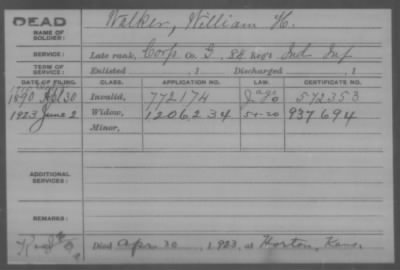 DEAD
NAME OF SOLDIER:
Walker, William H.
SERVICE:
Late rank, Corp Co. I, 88 Reg't Ind Inf
TERM OF SERVICE:
Enlisted , 1 Discharged , 1
DATE OF FILING. CLASS. APPLICATION NO. LAW. CERTIFICATE NO.
1890 30 Invalid, 772174 572353
1923 June 2 Widow, 1206234 5-1-20 937694
Minor,
ADDITIONAL SERVICES:
REMARKS:
Died Apr 30, 1923, at Horton, Kans.